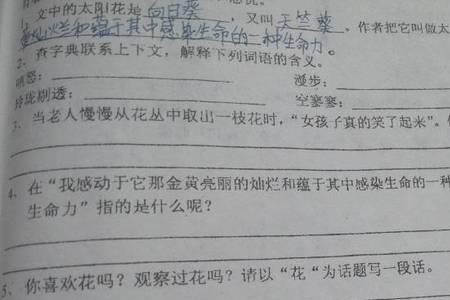 文中的太阳花是 向日葵 ，又叫 天竺葵 。作者把它叫做太
和蕴于其中感染生命的一种生命力。
2、查字典联系上下文，解释下列词语的含义。
嗔怒： 漫步：
玲珑剔透：
3、当老人慢慢从花丛中取出一枝花时，“女孩子真的笑了起来”。
4、在“我感动于它那金黄亮丽的灿烂和蕴于其中感染生命的一种
生命力”指的是什么呢？
5、你喜欢花吗？观察过花吗？请以“花“为话题写一段话。